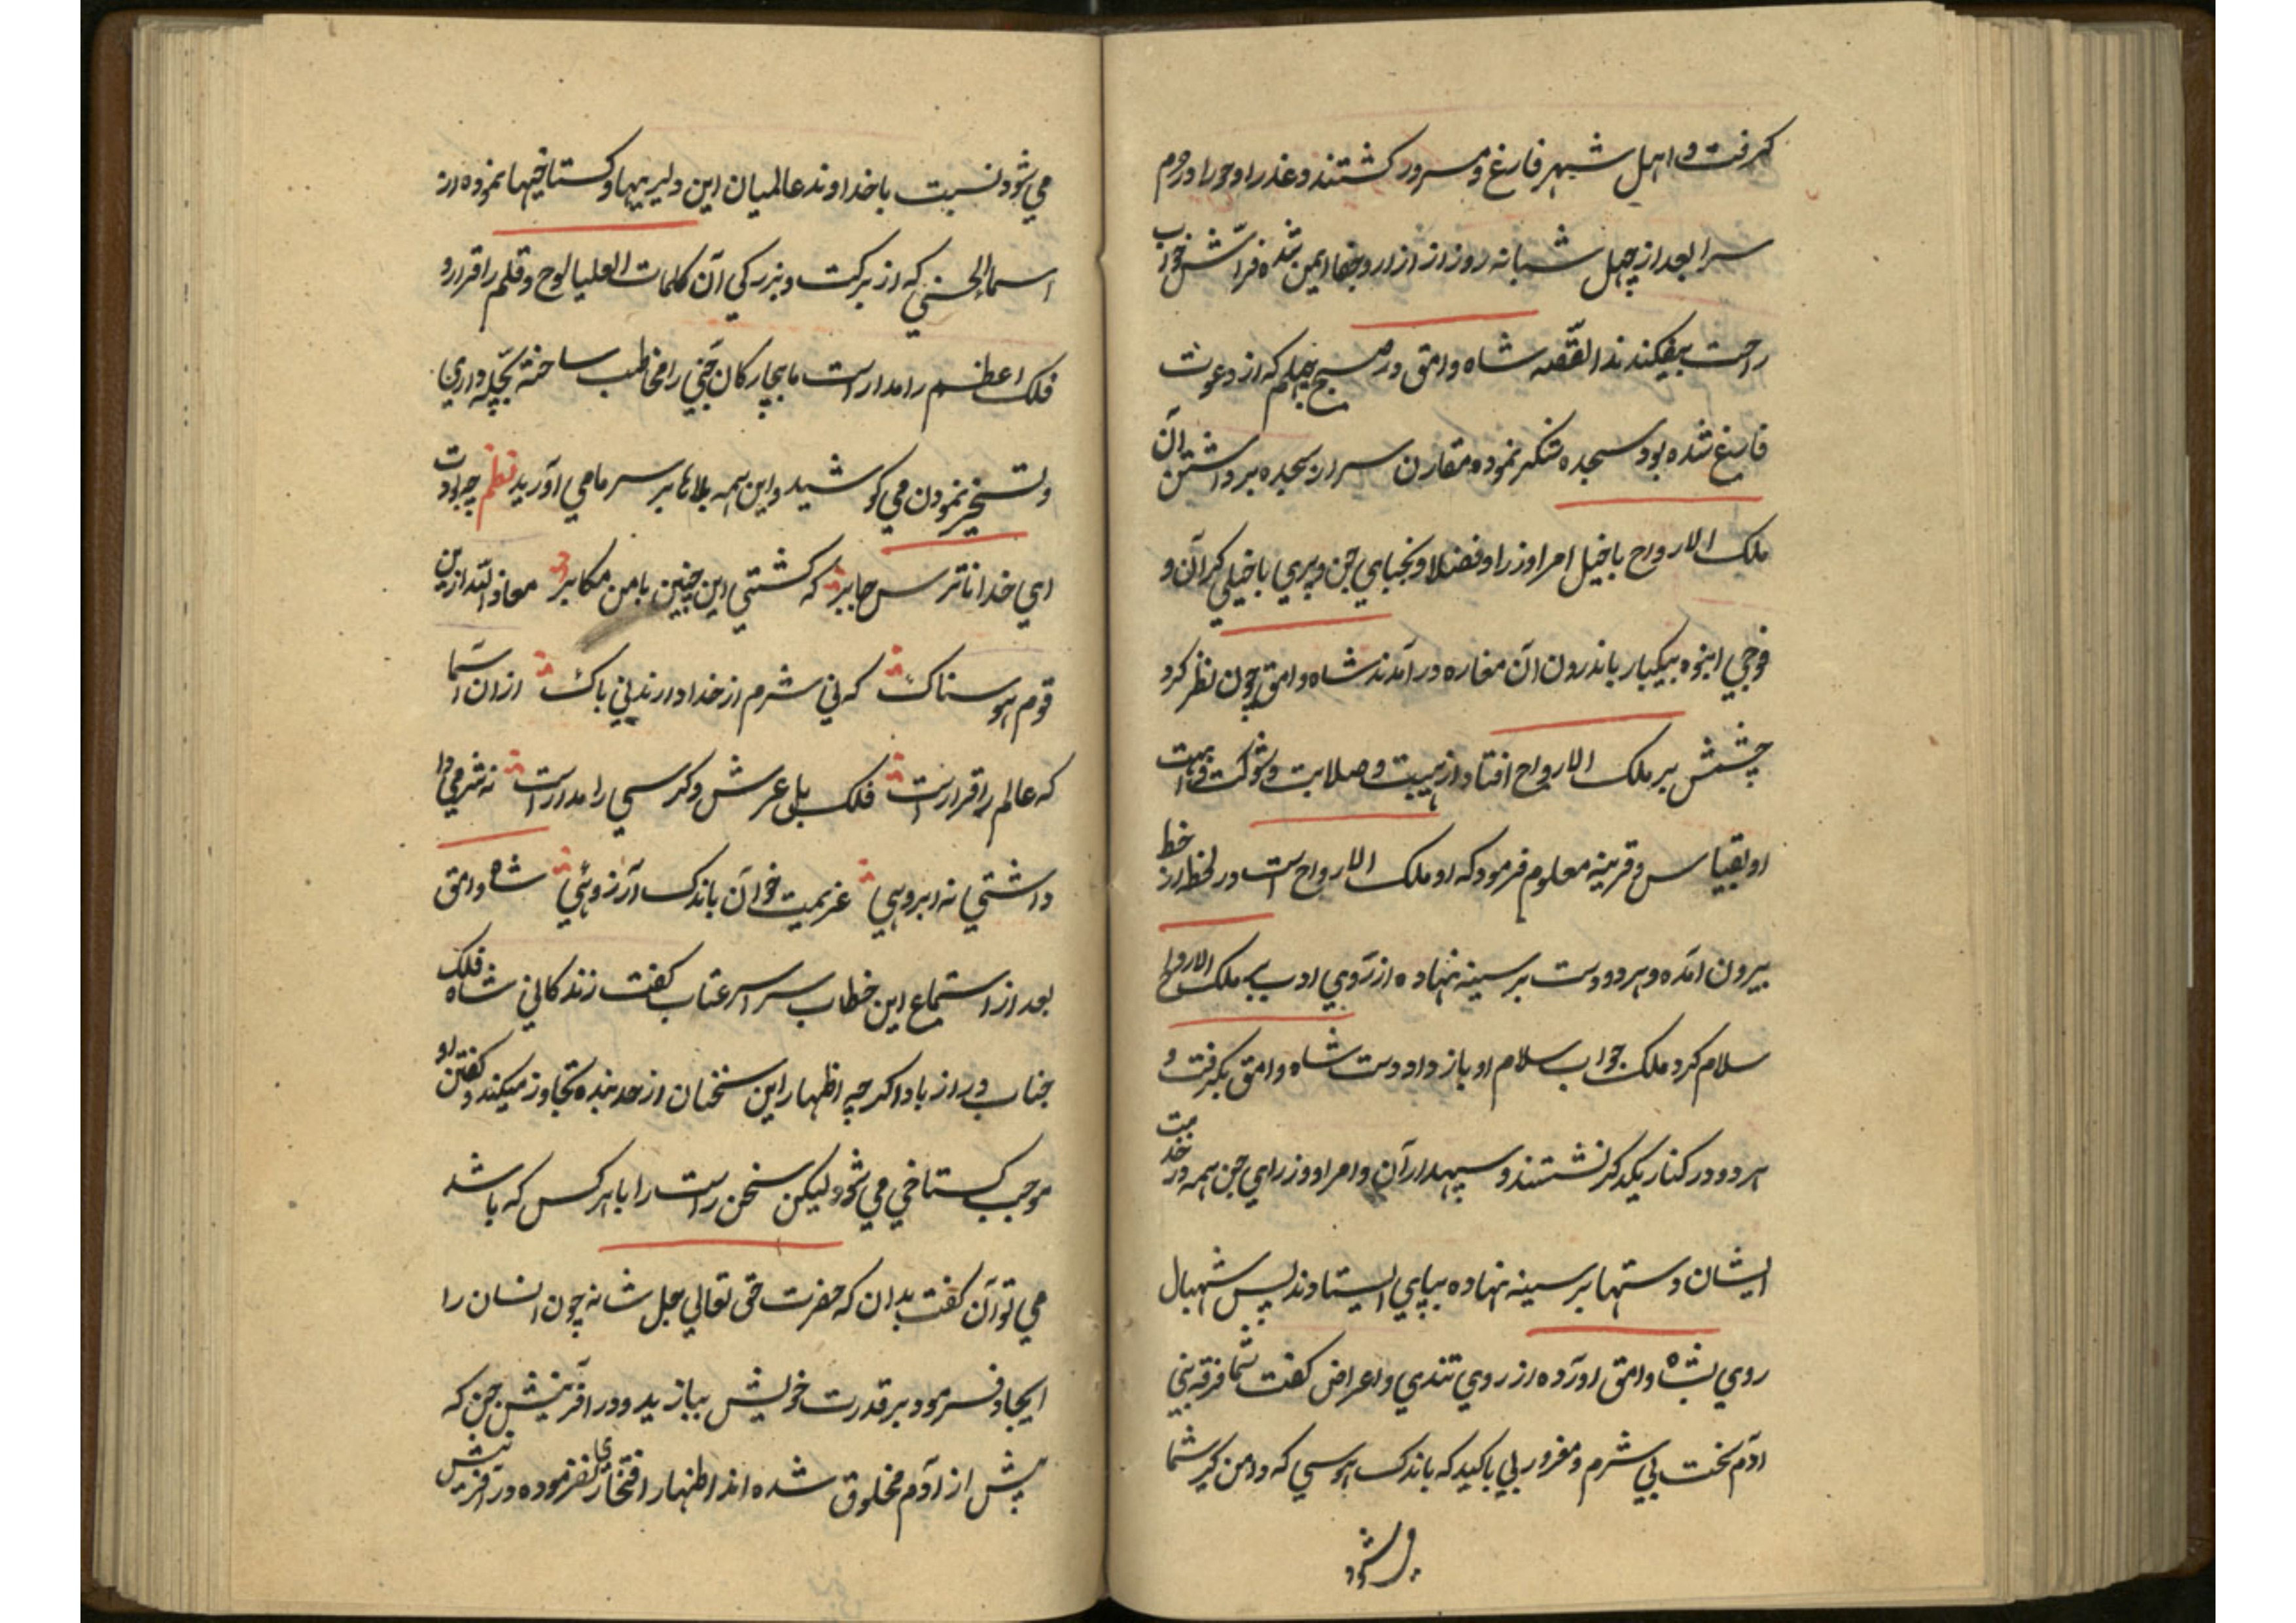 کرفت و اهل شهر فارغ و مسرور کشتند و عذرا و حورا در حرم
سرا بعد از چهل شبانه روز از ازار و جفا ایمن شده فراش خواب
راحت بیفکندند القصه شاه وامق در صبح چهلم که از دعوت
فارغ شده بود سجده شکر نموده مقارن سر از سجده برداشتن آن
ملک الارواح باخیل امرا وزرا و فضلا و نجبای جن و پری باخیلی کرآن و
فوجی انبوه بیکبار باندرون آن مغاره درآمدند شاه وامق چون نظر کرد
چشمش بر ملک الارواح افتاد از هیبت و صلابت و شوکت
او بقیاس و قرینه معلوم فرمود که او ملک الارواح است در لحظه از خط
بیرون آمده و هر دو دست بر سینه نهاده از روی ادب بملک الارواح
سلام کرد ملک جواب سلام او باز داد و دست شاه وامق بکرفت و
هر دو در کنار یکدکر نشستند و سپهدارآن و امرا و وزرای جن همه در خدمت
ایشان دستها بر سینه نهاده بپای ایستادند پس شهبال
روی بشاه وامق اورده از روی تندی و اعراض کفت شما فرقه بنی
آدم سخت بی شرم و مغرور بی باکید که باندک هوسی که دامن کیر شما
می شود
می شود نسبت باخداوند عالمیان این دلیریها و کستاخیها نموده از
اسماءالحسنی که از برکت و بزرکی آن کلمات العلیا لوح و قلم را قرار و
فلک اعظم را مدار است ما بیچارکان جنی را مخاطب ساخته بچله داری
و تسخیر نمودن می کوشید و این همه بلاها بر سر ما می آورید نظم چرا دات
ای خدا ناترس جابر که کشتی این چنین با من مکابر معاذ الله ازین
قوم هوسناک که نی شرم از خدا دارند نی باک ازان اسما
که عالم را قرار است فلک بلی عرش و کرسی را مدار است نه شرمی را
داشتی نه ابروئی عزیمت خوآن باندک آرزوئی شاه وامق
بعد از استماع این خطاب سراسر عتاب کفت زندکانی شاه فلک
جناب دراز باد اکرچه اظهار این سخنان از حد بنده تجاوز میکند و کفتن او
موجب کستاخی می شود لیکن سخن راست را با هر کس که باشد
می توآن کفت بدان که حضرت حق تعالی جل شانه چون انسان را
ایجاد فرمود بر قدرت خویش ببازید و در آفرینش جن که
پیش از آدم مخلوق شده اند اظهار افتخاری نفرموده در آفرینش